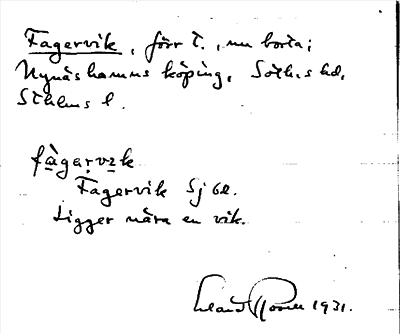 Fagervik, förr t., nu borta;
Nynäshamns köping, Soths hd,
Sthlms l.
fàgarvik
Fagervik Sj 6e.
Ligger nära en vik.
1931.